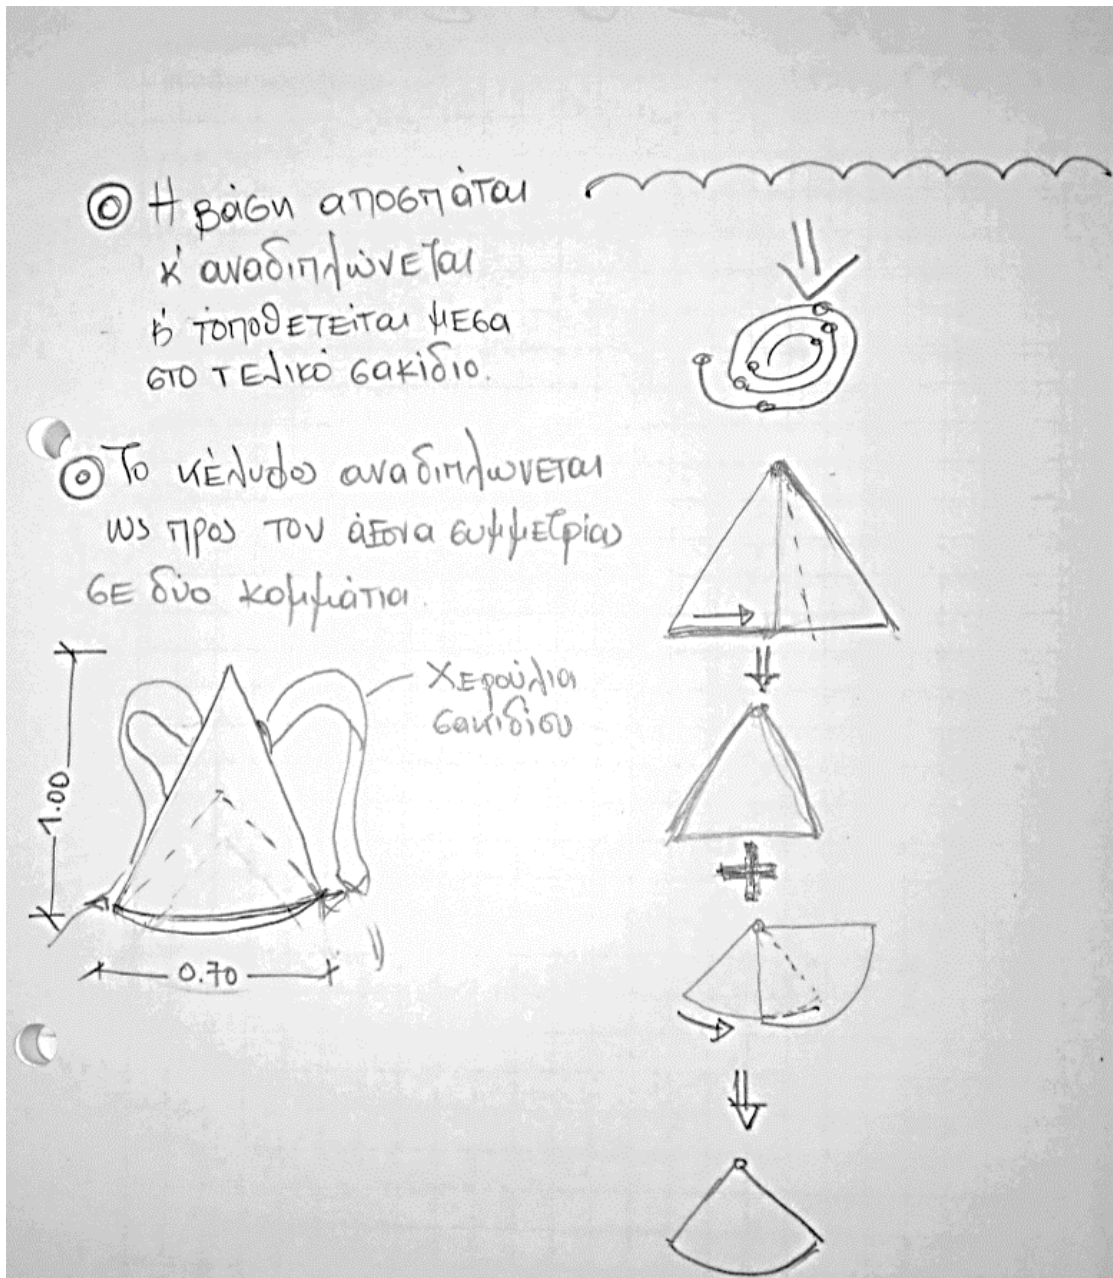 Η βάση αποσπάται
κ' αναδιπλώνεται
κ' τοποθετείται μέσα
στο τελικό σακίδιο.
Το κέλυφος αναδιπλώνεται
ως προς τον άξονα συμμετρίας
σε δύο κομμάτια.
Χερούλια
σακιδίου
1.00
0.70